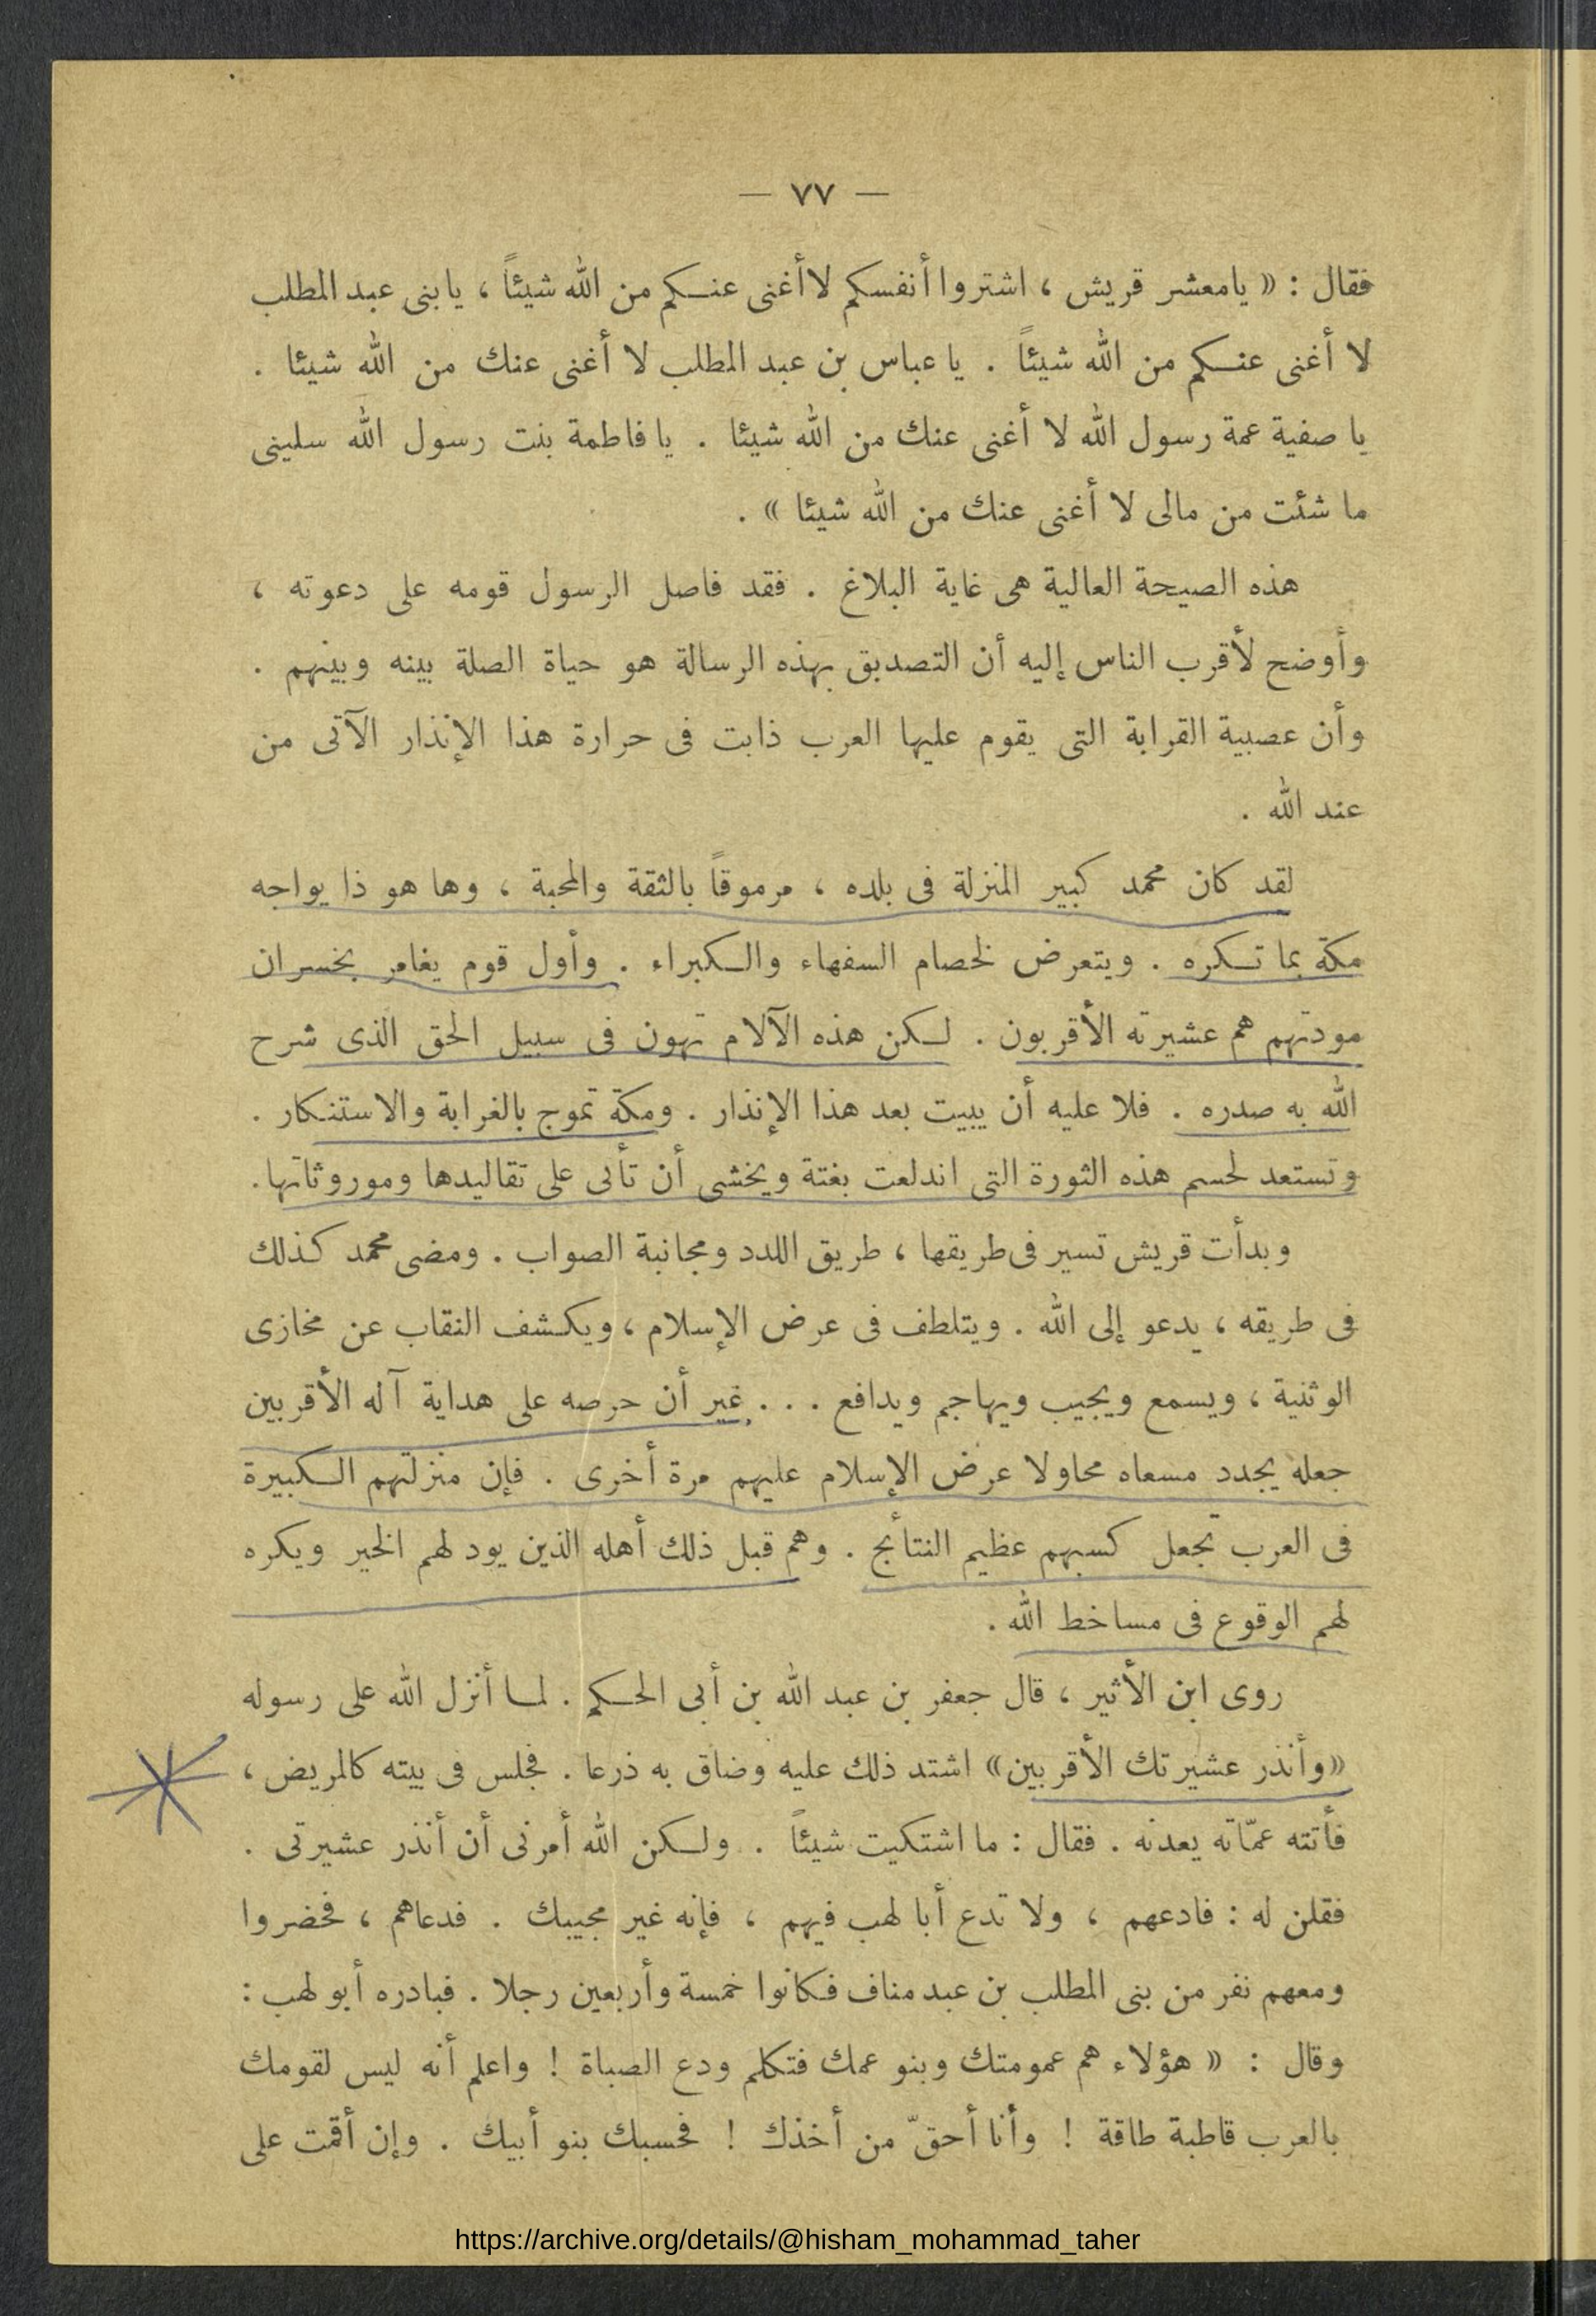 — ٧٧ —
فقال : « يامعشر قريش ، اشتروا أنفسكم لا أغنى عنكم من الله شيئاً ، يابنى عبد المطلب
لا أغنى عنكم من الله شيئاً . يا عباس بن عبد المطلب لا أغنى عنك من الله شيئا .
يا صفية عمة رسول الله لا أغنى عنك من الله شيئا . يا فاطمة بنت رسول الله سلينى
ما شئت من مالى لا أغنى عنك من الله شيئا » .
هذه الصيحة العالية هى غاية البلاغ . فقد فاصل الرسول قومه على دعوته ،
وأوضح لأقرب الناس إليه أن التصديق بهذه الرسالة هو حياة الصلة بينه وبينهم .
وأن عصبية القرابة التى يقوم عليها العرب ذابت فى حرارة هذا الإنذار الآتى من
عند الله .
لقد كان محمد كبير المنزلة فى بلده ، مرموقاً بالثقة والمحبة ، وها هو ذا يواجه
مكة بما تكره . ويتعرض لخصام السفهاء والكبراء . وأول قوم يغامر بخسران
مودتهم هم عشيرته الأقربون . لكن هذه الآلام تهون فى سبيل الحق الذى شرح
الله به صدره . فلا عليه أن يبيت بعد هذا الإنذار . ومكة تموج بالغرابة والاستنكار .
وتستعد لحسم هذه الثورة التى اندلعت بغتة ويخشى أن تأتى على تقاليدها وموروثاتها .
وبدأت قريش تسير فى طريقها ، طريق اللدد ومجانبة الصواب . ومضى محمد كذلك
فى طريقه ، يدعو إلى الله . ويتلطف فى عرض الإسلام ، ويكشف النقاب عن مخازى
الوثنية ، ويسمع ويجيب ويهاجم ويدافع . . . غير أن حرصه على هداية آله الأقربين
جعله يجدد مسعاه محاولا عرض الإسلام عليهم مرة أخرى . فإن منزلتهم الكبيرة
فى العرب تجعل كسبهم عظيم النتائج . وهم قبل ذلك أهله الذين يود لهم الخير ويكره
لهم الوقوع فى مساخط الله .
روى ابن الأثير ، قال جعفر بن عبد الله بن أبى الحكم . لما أنزل الله على رسوله
«وأنذر عشيرتك الأقربين» اشتد ذلك عليه وضاق به ذرعا . فجلس فى بيته كالمريض ،
فأتته عمّاته يعدنه . فقال : ما اشتكيت شيئاً . ولكن الله أمرنى أن أنذر عشيرتى .
فقلن له : فادعهم ، ولا تدع أبا لهب فيهم ، فإنه غير مجيبك . فدعاهم ، فحضروا
ومعهم نفر من بنى المطلب بن عبد مناف فكانوا خمسة وأربعين رجلا . فبادره أبو لهب :
وقال : « هؤلاء هم عمومتك وبنو عمك فتكلم ودع الصباة ! واعلم أنه ليس لقومك
بالعرب قاطبة طاقة ! وأنا أحقّ من أخذك ! فحسبك بنو أبيك . وإن أقمت على
https://archive.org/details/@hisham_mohammad_taher